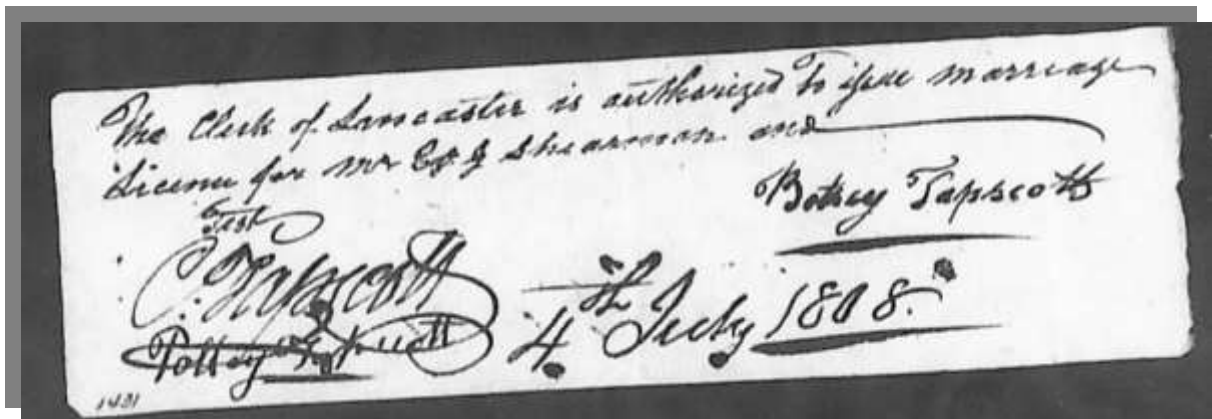 The Clerk of Lancaster is authorized to issue marriage
License for Mr Shearman and
Betsey Tapscott
Test
C. Tapscott
4th July 1808.
1431